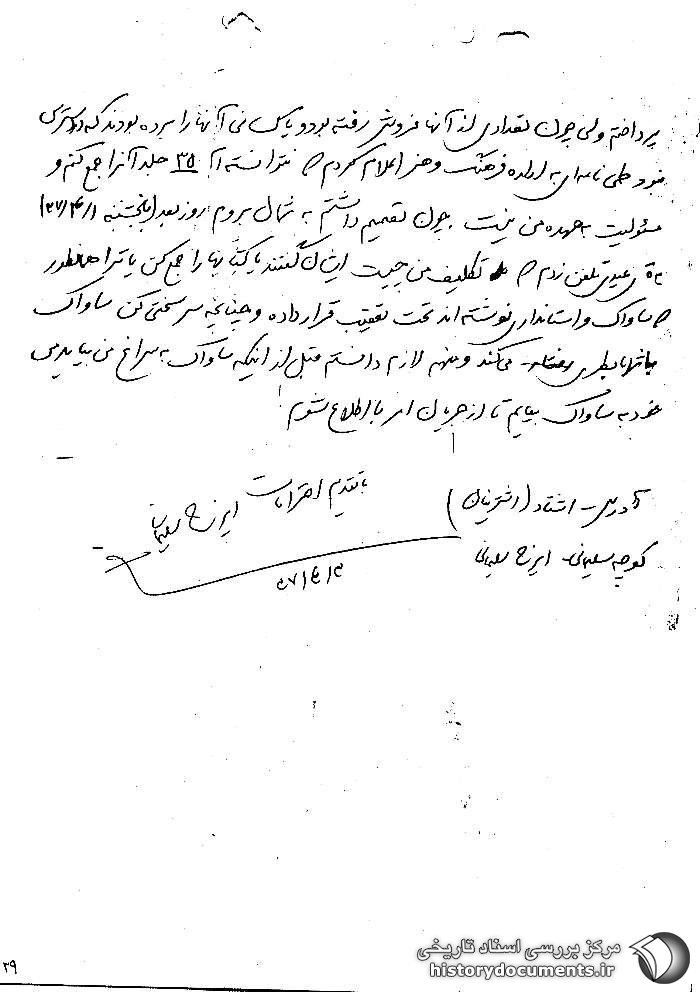 پرداختم ولی چون تعدادی از آنها فروش رفته بود و یا کسانی آنها را برده بودند که در دسترس
نبود طی نامه‌ای به اداره فرهنگ و هنر اعلام کردم که نتوانسته‌ام ۳۵ جلد آنرا جمع کنم و
مسئولیت به عهده من نیست چون تصمیم داشتم به شمال بروم روز بعد (پنجشنبه ۳۷/۴/۱)
به آقای عیدی تلفن زدم که تکلیف من چیست ایشان گفتند یا کتابها را جمع کن یا ترا همانطور
که ساواک و استانداری نوشته‌اند تحت تعقیب قرار داده و چنانچه سرسختی کن ساواک
می‌کند و منهم لازم دانستم قبل از اینکه ساواک به سراغ من بیاید من
خود به ساواک بیایم تا از جریان امر با اطلاع شوم
با تقدیم احترامات ایرج سلیمانی
آدرس - (اشترینان)
کوچه سلیمانی - ایرج سلیمانی
۳۹
مرکز بررسی اسناد تاریخی
historydocuments.ir